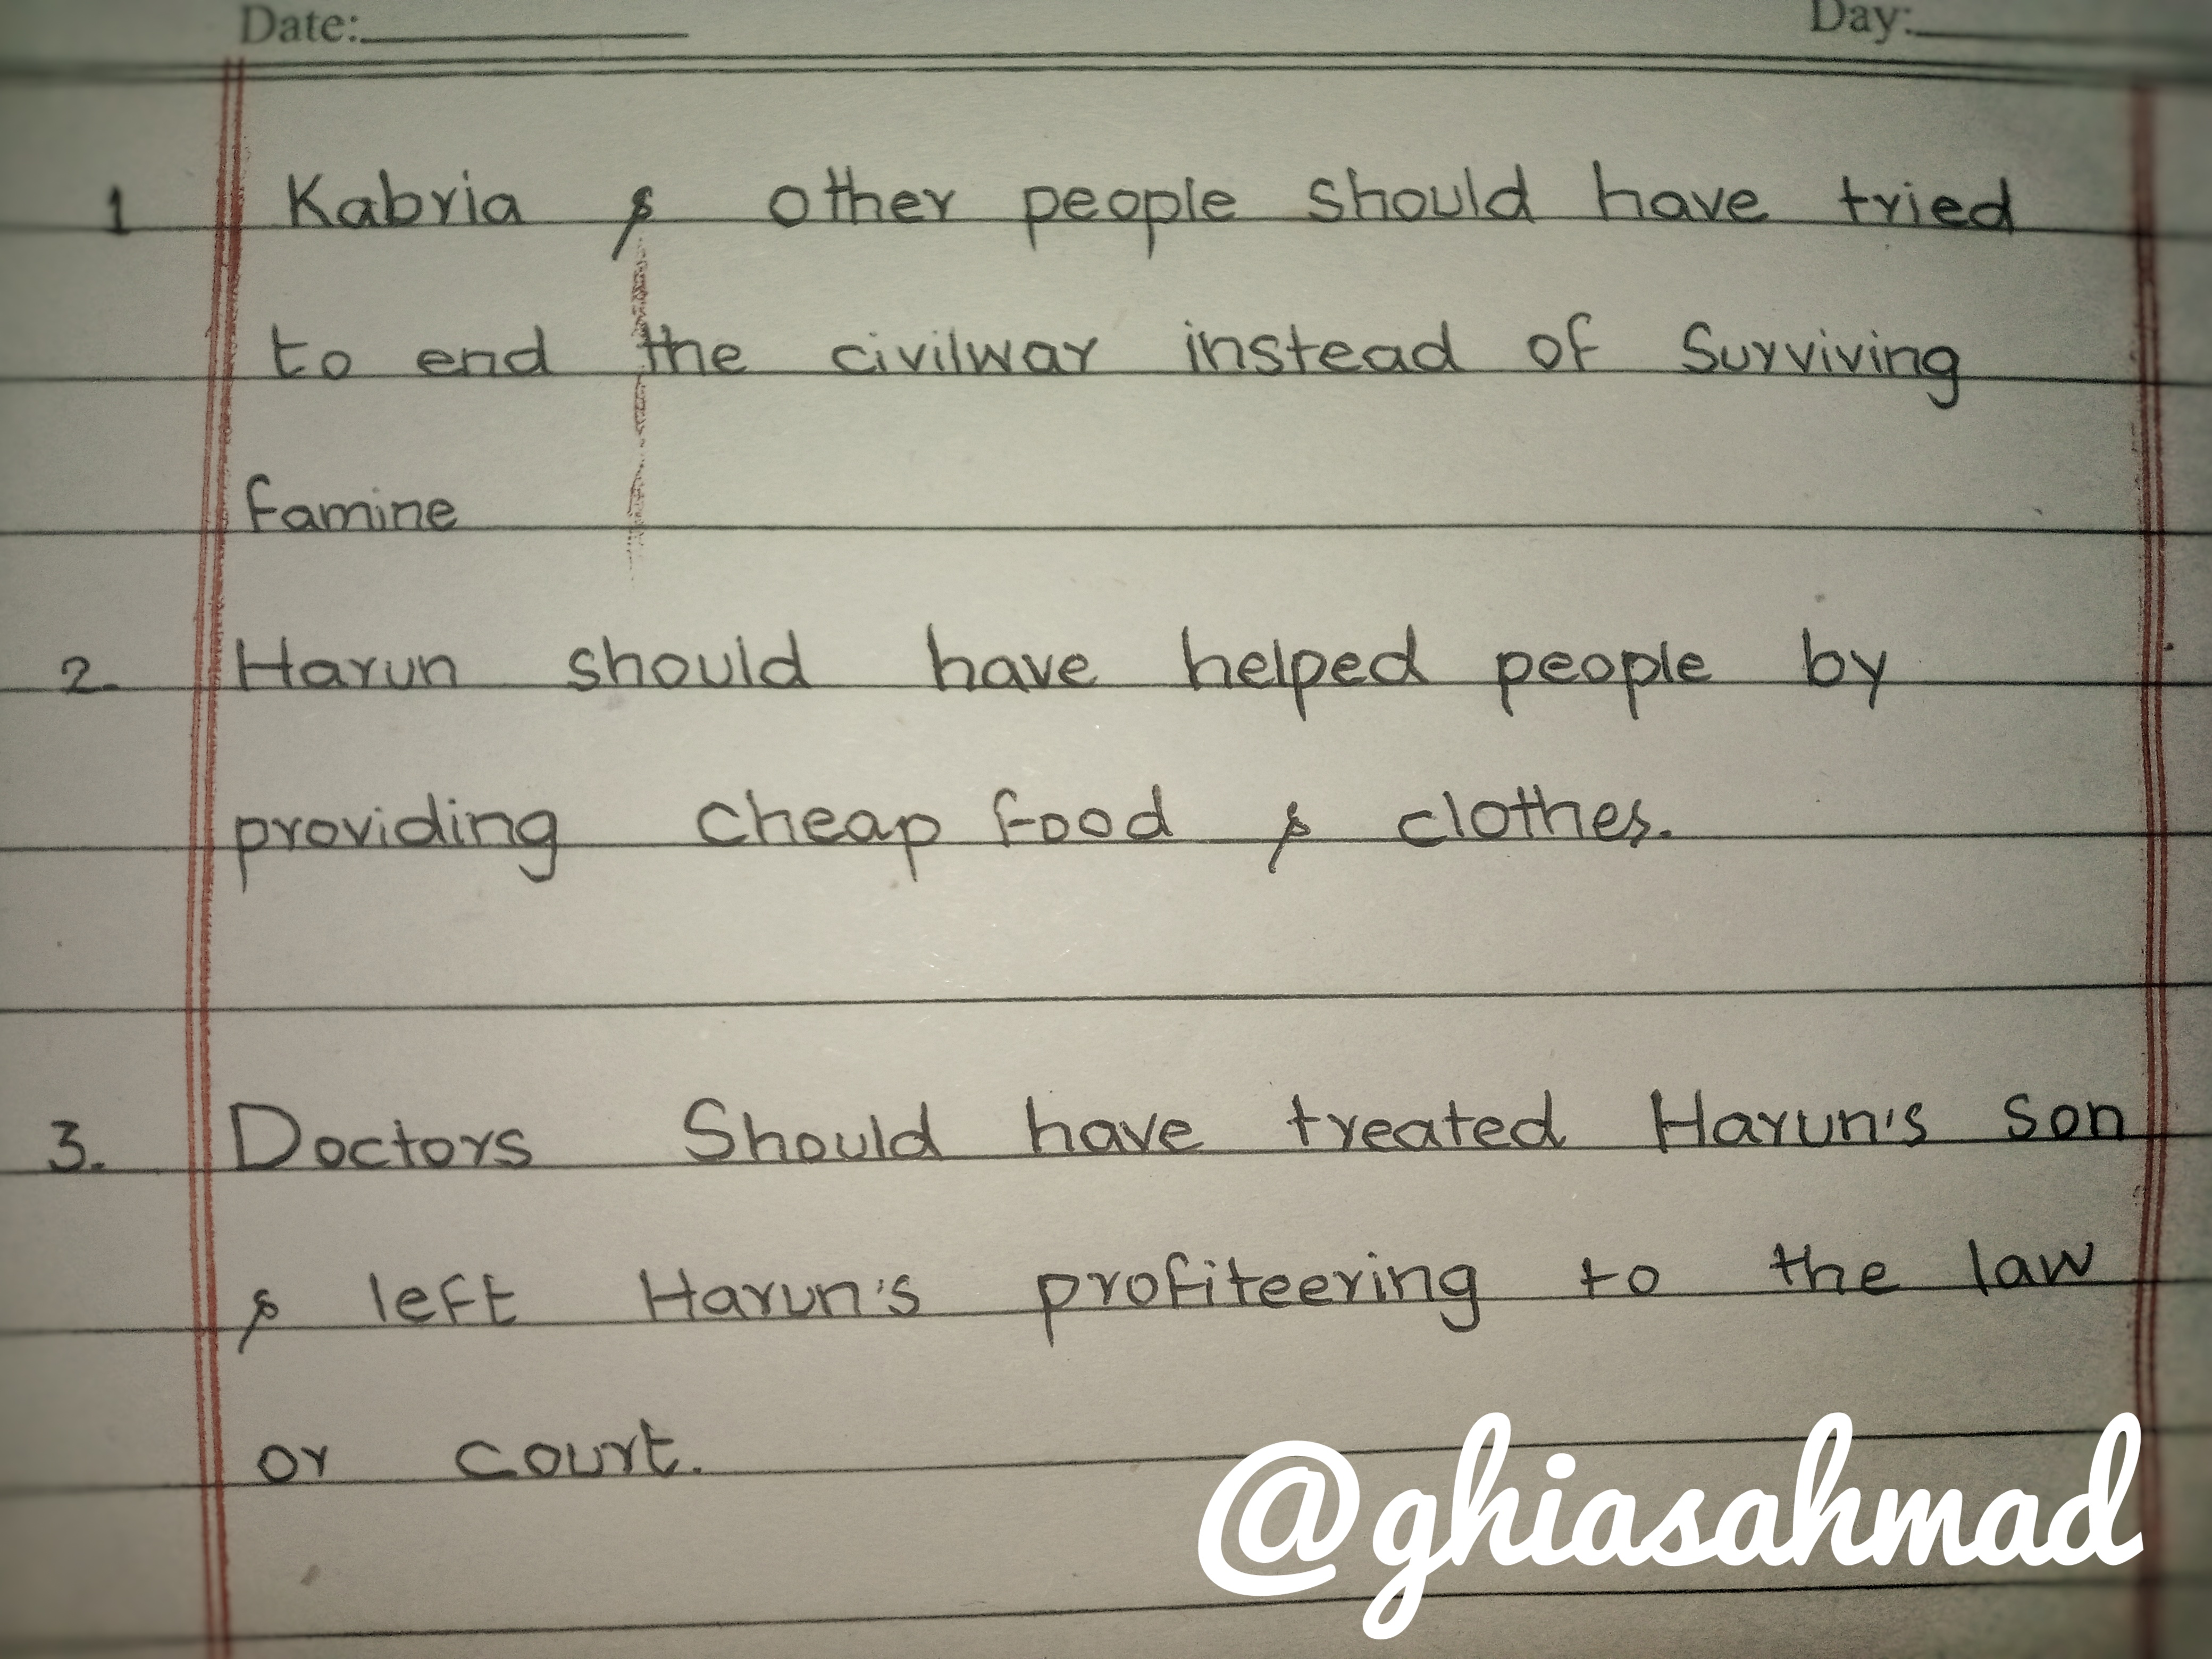 Date: Day:
1 Kabria & other people should have tried
to end the civilwar instead of Surviving
famine
2. Harun should have helped people by
providing cheap food & clothes.
3. Doctors Should have treated Harun's son
& left Harun's profiteering to the law
or court.
@ghiasahmad